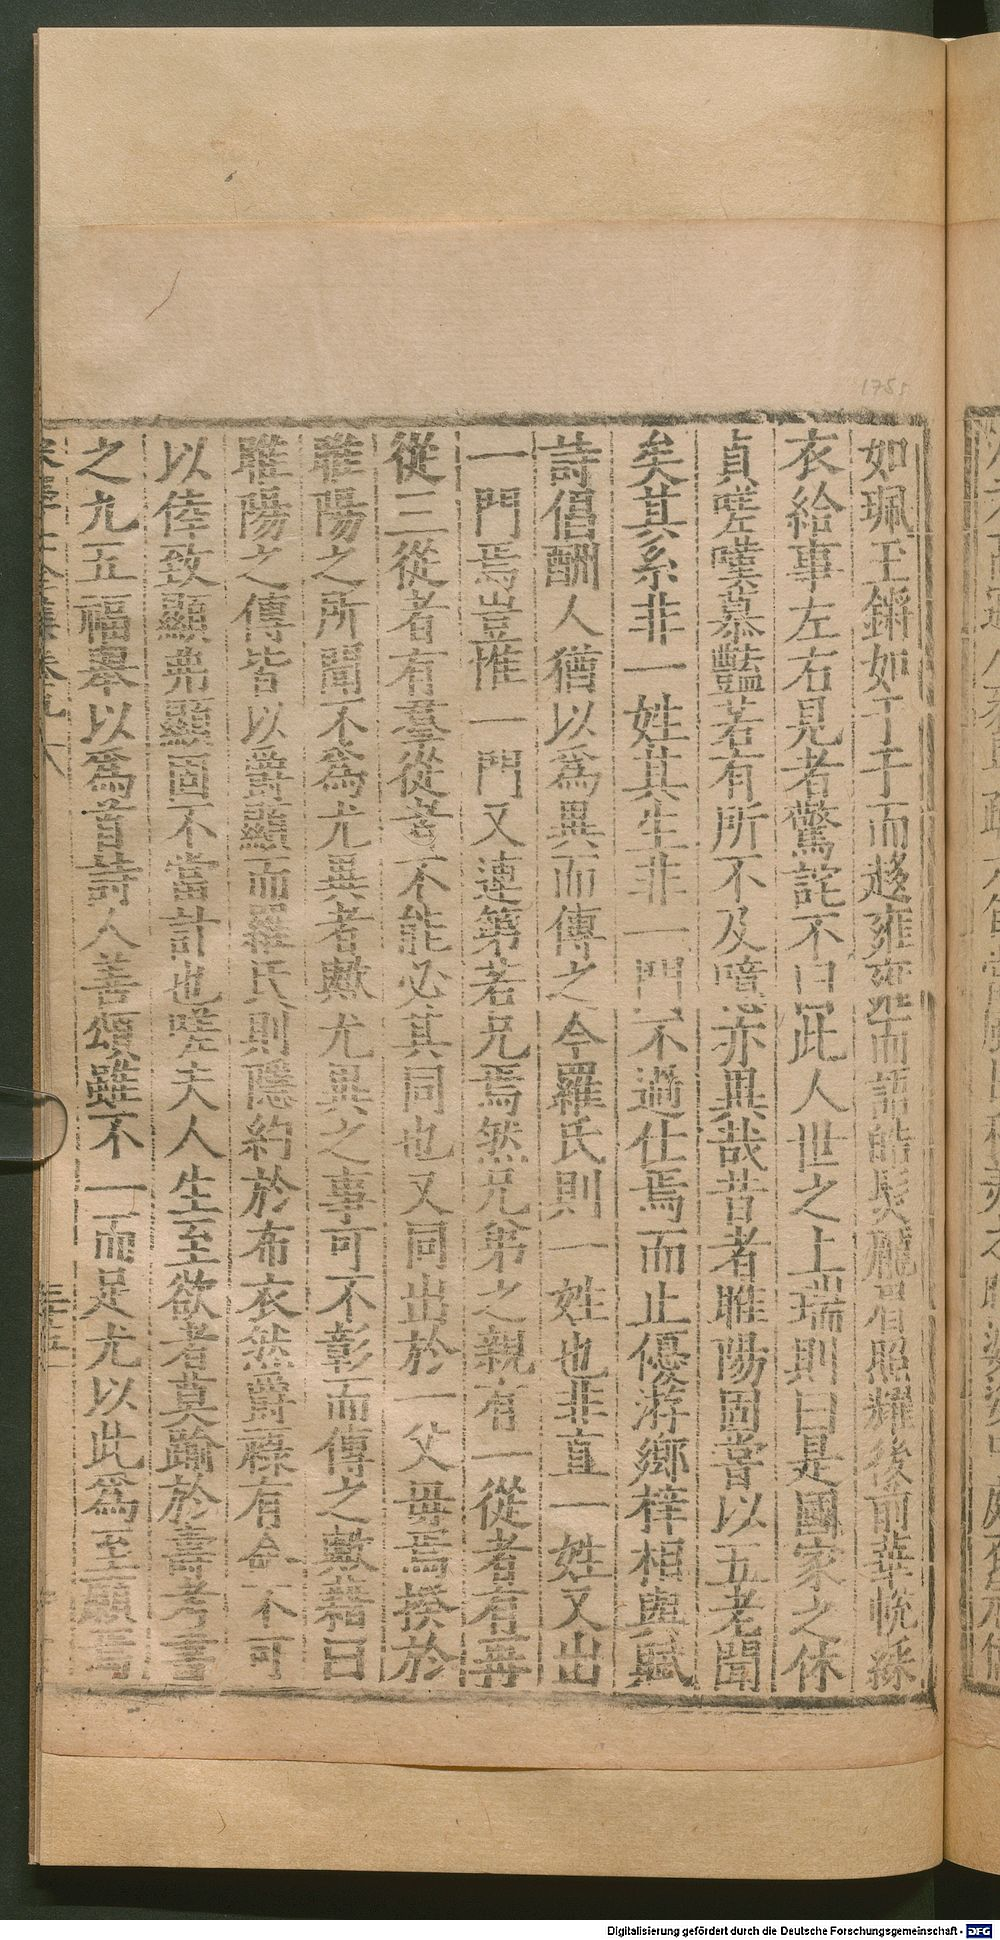 如珮玉鏘如于于而趍雍雍而語皓髮龐眉照耀後前華恍綵
衣給事左右見者驚詫不曰此人世之上瑞則曰是國家之休
貞嗟嘆慕豔若有所不及噫亦異哉昔者睢陽固嘗以五老聞
矣其系非一姓其生非一門不過仕焉而止優游鄉梓相與賦
詩倡酬人猶以為異而傳之今羅氏則一姓也非直一姓又出
一門焉豈惟一門又連第若兄焉然兄弟之親有一從者有再
從三從者有羣從者不能必其同也又同出於一父母焉揆於
睢陽之所聞不為尤異者歟尤異之事可不彰而傳之歟藉曰
睢陽之傳皆以爵顯而羅氏則隱約於布衣然爵祿有命不可
以倖致顯弗顯固不當計也嗟夫人生至欲者莫踰於壽考書
之尢五福舉以為首詩人善頌雖不一而足尤以此為至願焉
卷九
1755
Digitalisierung gefördert durch die Deutsche Forschungsgemeinschaft - DFG